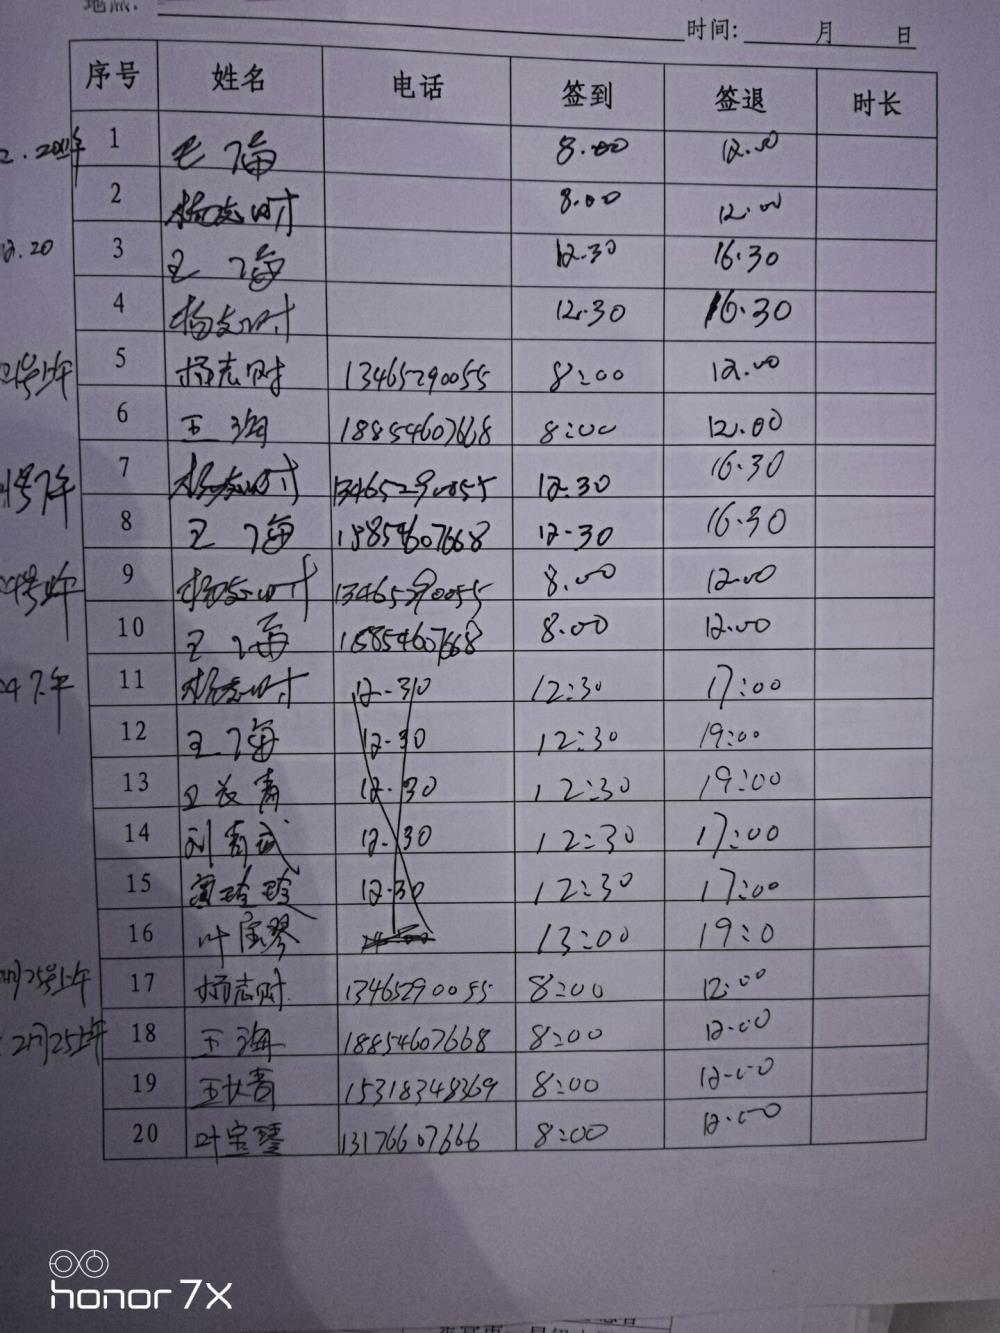 地点:
时间: 月 日
序号 姓名 电话 签到 签退 时长
1 王海 8.00 12.00
2 杨志财 8.00 12.00
12.20 3 王海 12.30 16.30
4 杨志财 12.30 16.30
21号上午 5 杨志财 13465290055 8:00 12.00
6 王海 18854607668 8:00 12.00
号下午 7 杨志财 13465290055 12.30 16.30
8 王海 18854607668 12.30 16.30
24号上午 9 杨志财 13465290055 8.00 12.00
10 王海 18854607668 8.00 12.00
24下午 11 杨志财 12.30 12:30 17:00
12 王海 12.30 12:30 19:00
13 王长青 12.30 12:30 19:00
14 12.30 12:30 17:00
15 12.30 12:30 17:00
16 叶宝琴 13:00 19:0
月25号上午 17 杨志财 13465290055 8:00 12:00
12月25上午 18 王海 18854607668 8:00 12.00
19 王长青 15318348369 8:00 12.00
20 叶宝琴 13176607666 8:00 12.00
honor 7X